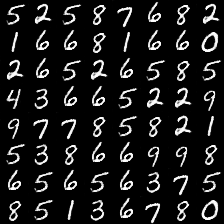 5 2 5 8 7 6 8 2
1 6 6 8 1 6 6 0
2 6 5 2 6 5 8 5
4 3 6 6 5 2 2 9
9 7 7 8 5 8 2 1
5 3 8 6 6 9 9 8
6 5 6 5 6 3 7 5
8 5 1 3 6 7 8 0